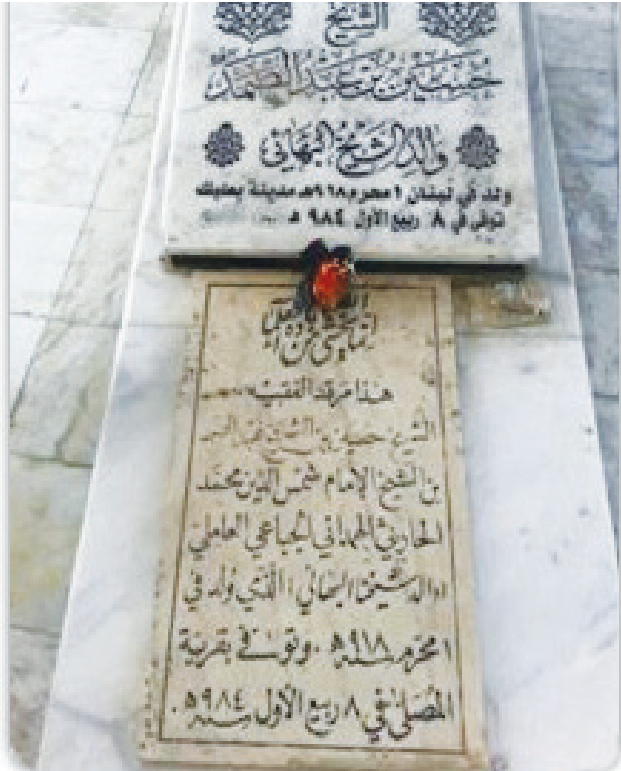 الشيخ
حسين بن عبد الصمد
والد الشيخ البهائي
ولد في لبنان ١ محرم ٩١٨هـ مدينة بعلبك
توفى في ٨ ربيع الأول ٩٨٤ هـ
هذا مرقد الفقيه
الشيخ حسين بن
بن الشيخ الإمام شمس الدين محمد
الحارثي الهمداني الجباعي العاملي
والد شيخنا البهائي الذي ولد في
١ محرم سنة ٩١٨ هـ . وتوفي في بقرية
المصلى في ٨ ربيع الأول سنة ٩٨٤ هـ .